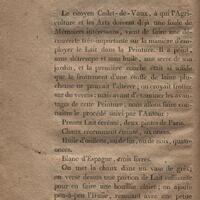 Le citoyen Cadet-de-Vaux, à qui l'Agri-
culture et les Arts doivent déjà une foule de
Mémoires intéressans, vient de faire une dé-
couverte très-importante sur la manière d'em-
ployer le Lait dans la Peinture. Il a peint,
sans détrempe et sans huile, une serre de son
jardin, et la première couche était si solide
que le frottement d'une étoffe de laine plu-
cheuse ne pouvait l'altérer; au
sur du vernis: mais avant d'examiner les avan-
tages de cette Peinture, nous allons faire con-
naître le procédé suivi par l'Auteur:
Prenez Lait écrémé, deux pintes de Paris.
Chaux récemment éteinte, six onces.
Huile d'œillets, ou de lin, ou de noix, quatre
onces.
Blanc d'Espagne, trois livres.
On met la chaux dans un vase de grès;
on verse dessus une portion de Lait suffisante
pour en faire une bouillie claire; on ajoute
peu-à-peu l'Huile, remuant avec une petite